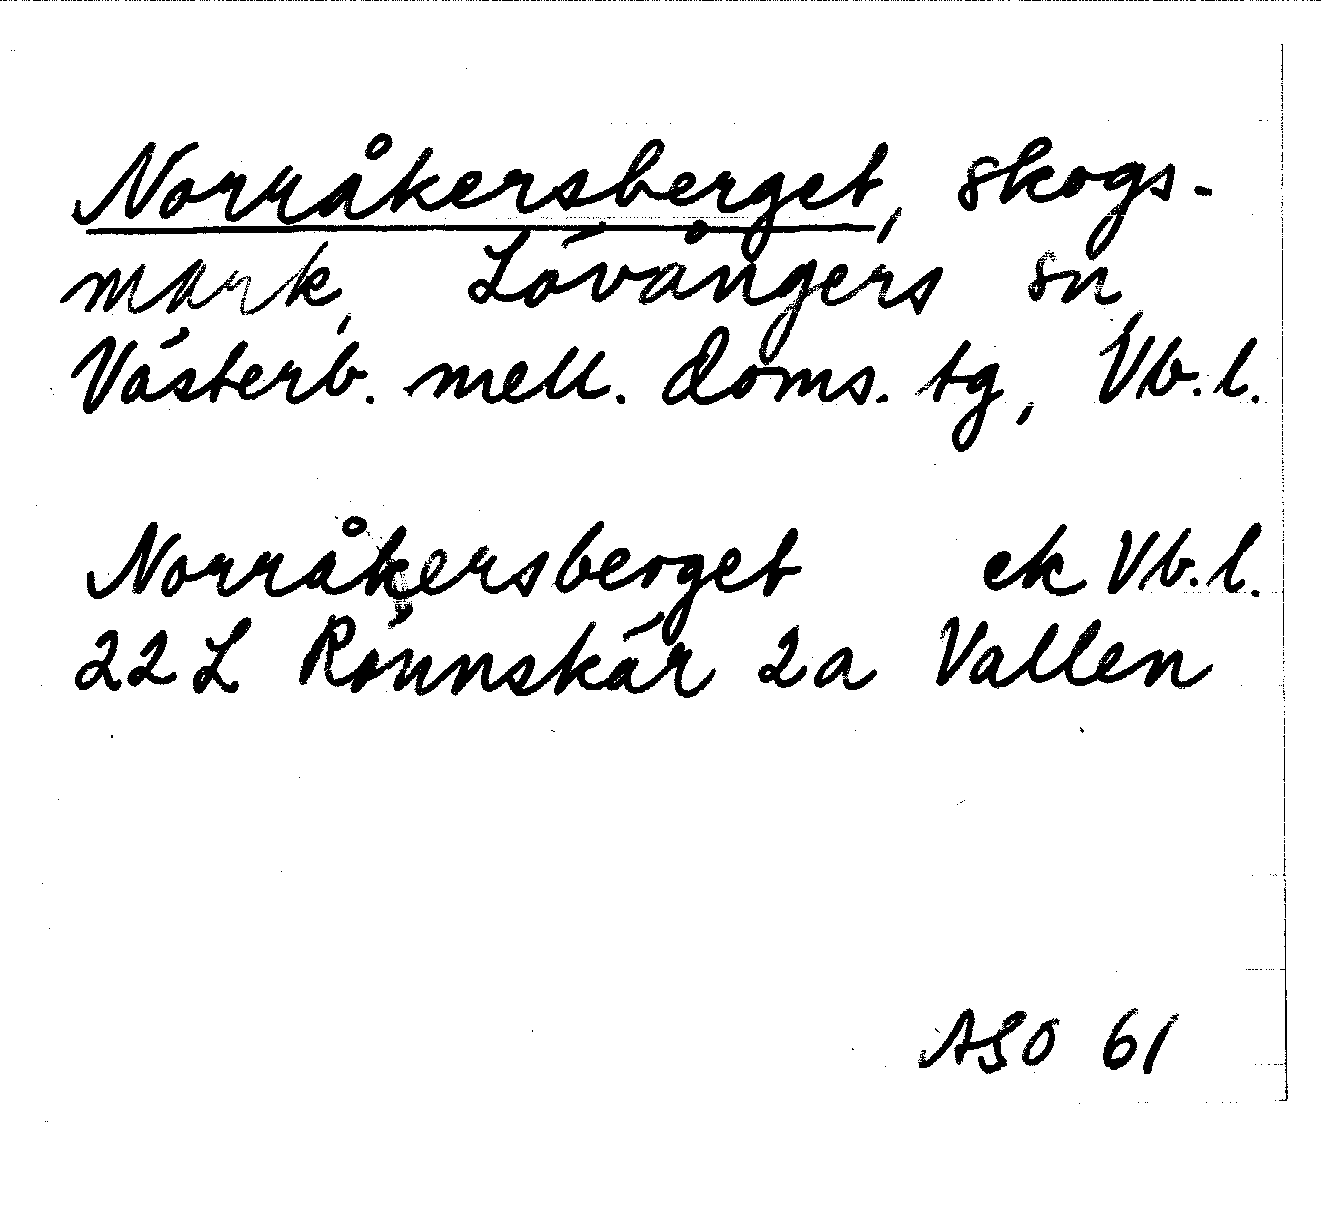 Norråkersberget, skogs-
mark, Lövångers sn,
Västerb. mell. doms. tg, Vb.l.
Norråkersberget ek Vb.l.
22 L Rönnskär 2a Vallen
ASO 61